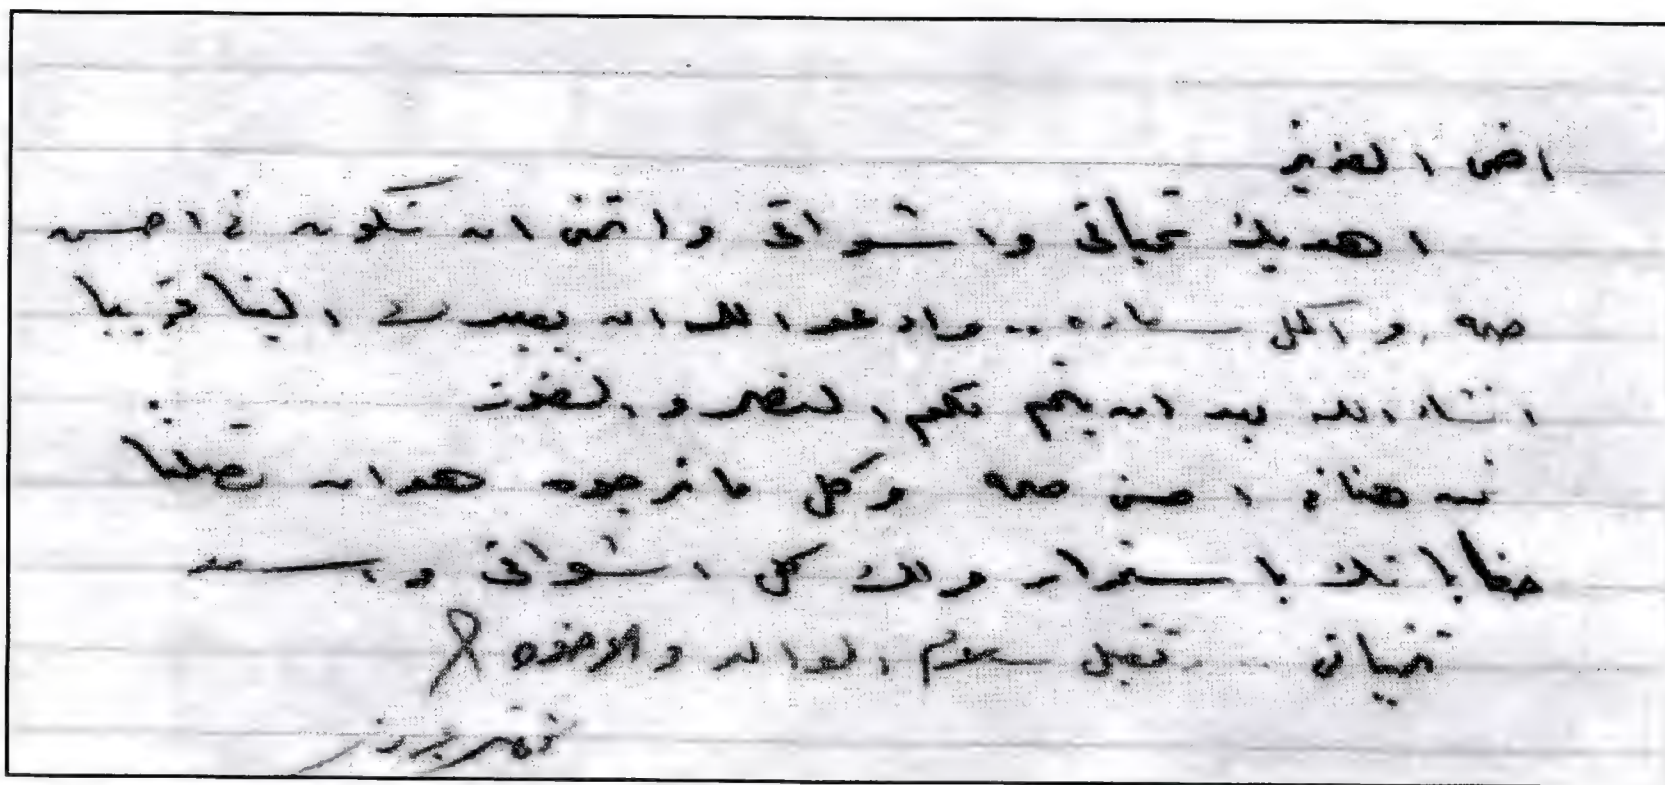 اخى العزيز
اهديك تحياتى واشواقى واتمنى ان تكون فى احسن
صحه واكمل سعاده .. وادعو الله ان يعيدك الينا قريبا
انشاء الله بعد ان يتم لكم النصر والفوز
نحن هنا فى احسن صحه وكل ما نرجوه هو ان تصلنا
خطاباتك باستمرار ولك كل اشواقى و
تمنياتى .. وتقبل سلام الوالد والاخوه